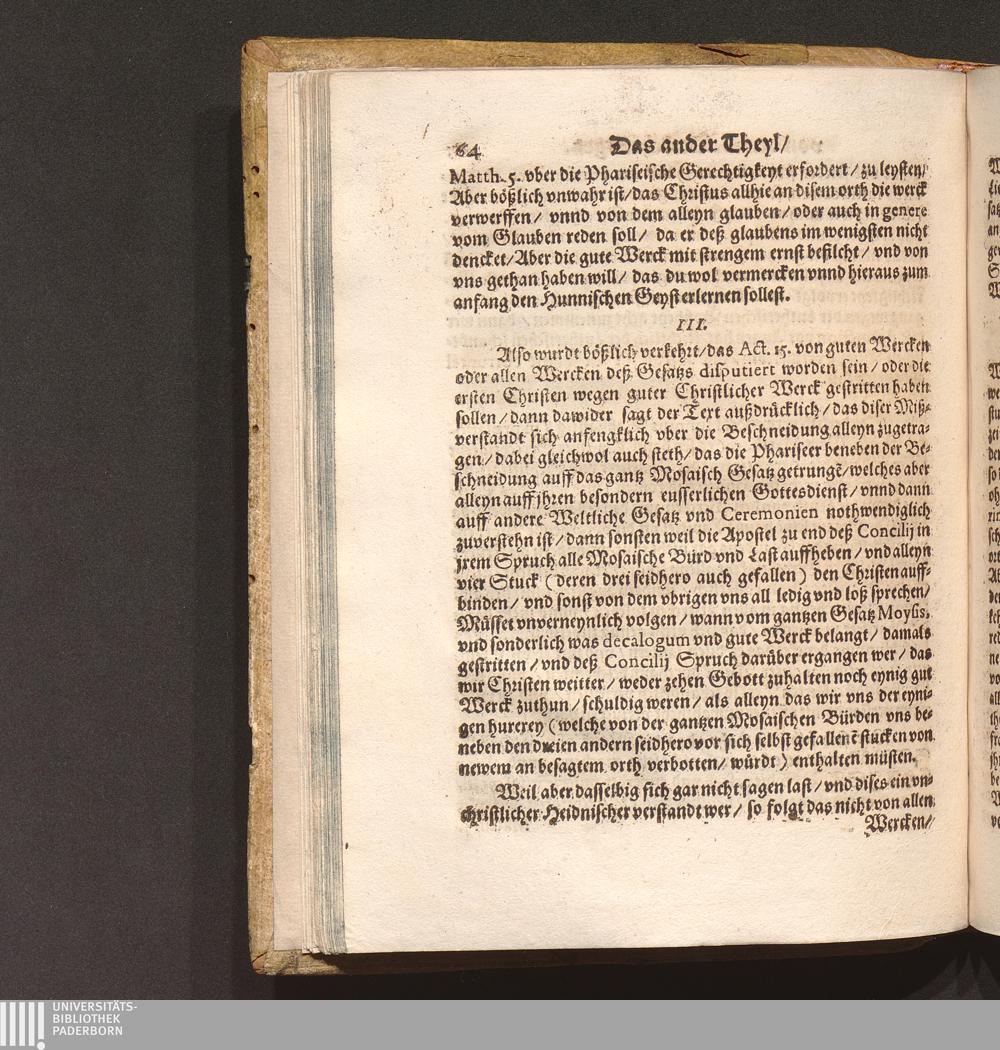 64 Das ander Theyl/
Matth. 5. vber die Phariseische Gerechtigkeyt erfordert/ zu leysten/
Aber bößlich vnwahr ist/ das Christus allhie an disem orth die werck
verwerffen/ vnnd von dem alleyn glauben/ oder auch in genere
vom Glauben reden soll/ da er deß glaubens im wenigsten nicht
dencket/ Aber die gute Werck mit strengem ernst befilcht/ vnd von
vns gethan haben will/ das du wol vermercken vnnd hieraus zum
anfang den Hunnischen Geyst erlernen sollest.
III.
Also wurdt bößlich verkehrt/ das Act. 15. von guten Wercken
oder allen Wercken deß Gesatzs disputiert worden sein/ oder die
ersten Christen wegen guter Christlicher Werck gestritten haben
sollen/ dann dawider sagt der Text außdrücklich/ das diser Miß-
verstandt sich anfengklich vber die Beschneidung alleyn zugetra-
gen/ dabei gleichwol auch steth/ das die Phariseer beneben der Be-
schneidung auff das gantz Mosaisch Gesatz getrungē/ welches aber
alleyn auff jhren besondern eusserlichen Gottesdienst/ vnnd dann
auff andere Weltliche Gesatz vnd Ceremonien nothwendiglich
zuverstehn ist/ dann sonsten weil die Apostel zu end deß Concilij in
jrem Spruch alle Mosaische Bürd vnd Last auffheben/ vnd alleyn
vier Stuck (deren drei seidhero auch gefallen) den Christen auff-
binden/ vnd sonst von dem vbrigen vns all ledig vnd loß sprechen/
Müsset vnverneynlich volgen/ wann vom gantzen Gesatz Moysis,
vnd sonderlich was decalogum vnd gute Werck belangt/ damals
gestritten/ vnd deß Concilij Spruch darüber ergangen wer/ das
wir Christen weitter/ weder zehen Gebott zuhalten noch eynig gut
Werck zuthun/ schuldig weren/ als alleyn das wir vns der eyni-
gen hurerey (welche von der gantzen Mosaischen Bürden vns be-
neben den dreien andern seidhero vor sich selbst gefallenē stucken von
newem an besagtem orth verbotten/ würdt) enthalten müsten.
Weil aber dasselbig sich gar nicht sagen last/ vnd dises ein vn-
christlicher Heidnischer verstandt wer/ so folgt das nicht von allen
Wercken/
UNIVERSITÄTS-
BIBLIOTHEK
PADERBORN